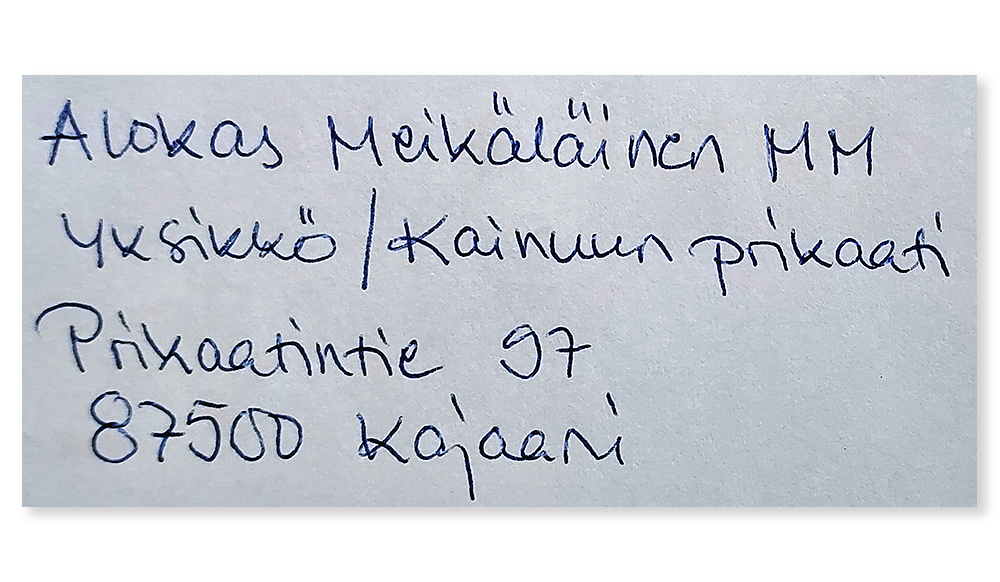 Alokas Meikäläinen MM
Yksikkö/Kainuun prikaati
Prikaatintie 97
87500 Kajaani